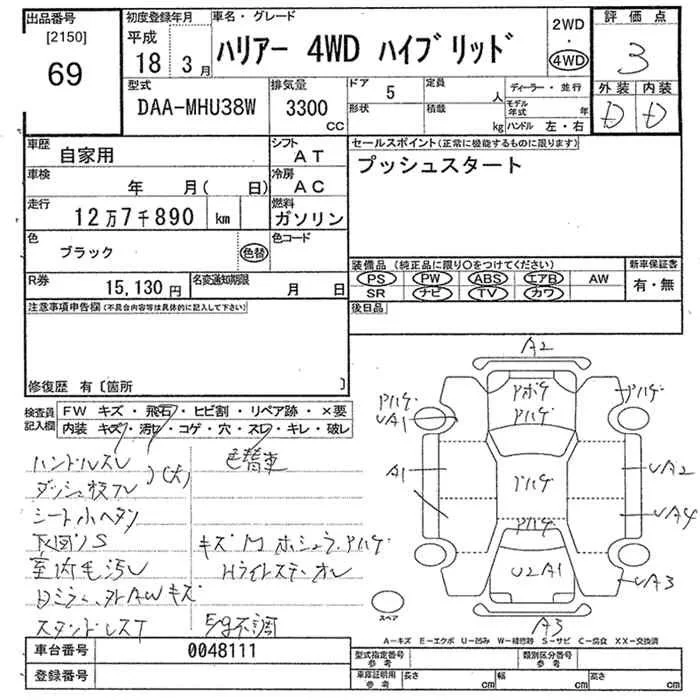 出品番号
[2150]
69
初度登録年月
平成
18 3月
車名・グレード
ハリアー 4WD ハイブリッド
2WD
・
4WD
評価点
3
外装 内装
D D
型式
DAA-MHU38W
排気量
3300
CC
ドア
5
定員
人
形状
積載
kg
ディーラー・並行
モデル年式 年
ハンドル 左・右
車歴
自家用
シフト
AT
車検
年 月( 日)
冷房
AC
走行
12万7千890 km
燃料
ガソリン
色
ブラック
色替
色コード
R券
15,130円
名変通知期限
月 日
セールスポイント(正常に機能するものに限ります)
プッシュスタート
装備品(純正品に限り○をつけてください)
PS PW ABS エアB AW
SR ナビ TV カワ
新車保証書
有・無
後日品
注意事項申告欄(不具合内容等は具体的に記入して下さい)
修復歴 有〔箇所 〕
検査員記入欄
FW キズ・飛石・ヒビ割・リペア跡・×要
内装 キズ・汚レ・コゲ・穴・スレ・キレ・破レ
ハンドルスレ
(大)
色替車
シート小ヘタリ
室内毛汚レ
キズ M ホシュラ,アハゲ
Hライトステーオレ
スタンドレスT
不調
A2
アボテ
アハゲ
アハゲ
アハゲ
UA1
A1
アハゲ
UA2
UA4
アハゲ
U2A1
UA3
A3
スペア
A-キズ E-エクボ U-凹み W-補修跡 S-サビ C-腐食 XX-交換済
車台番号
0048111
登録番号
型式指定番号
参考
類別区分番号
参考
車庫証明用
参考
長さ cm
幅 cm
高さ cm